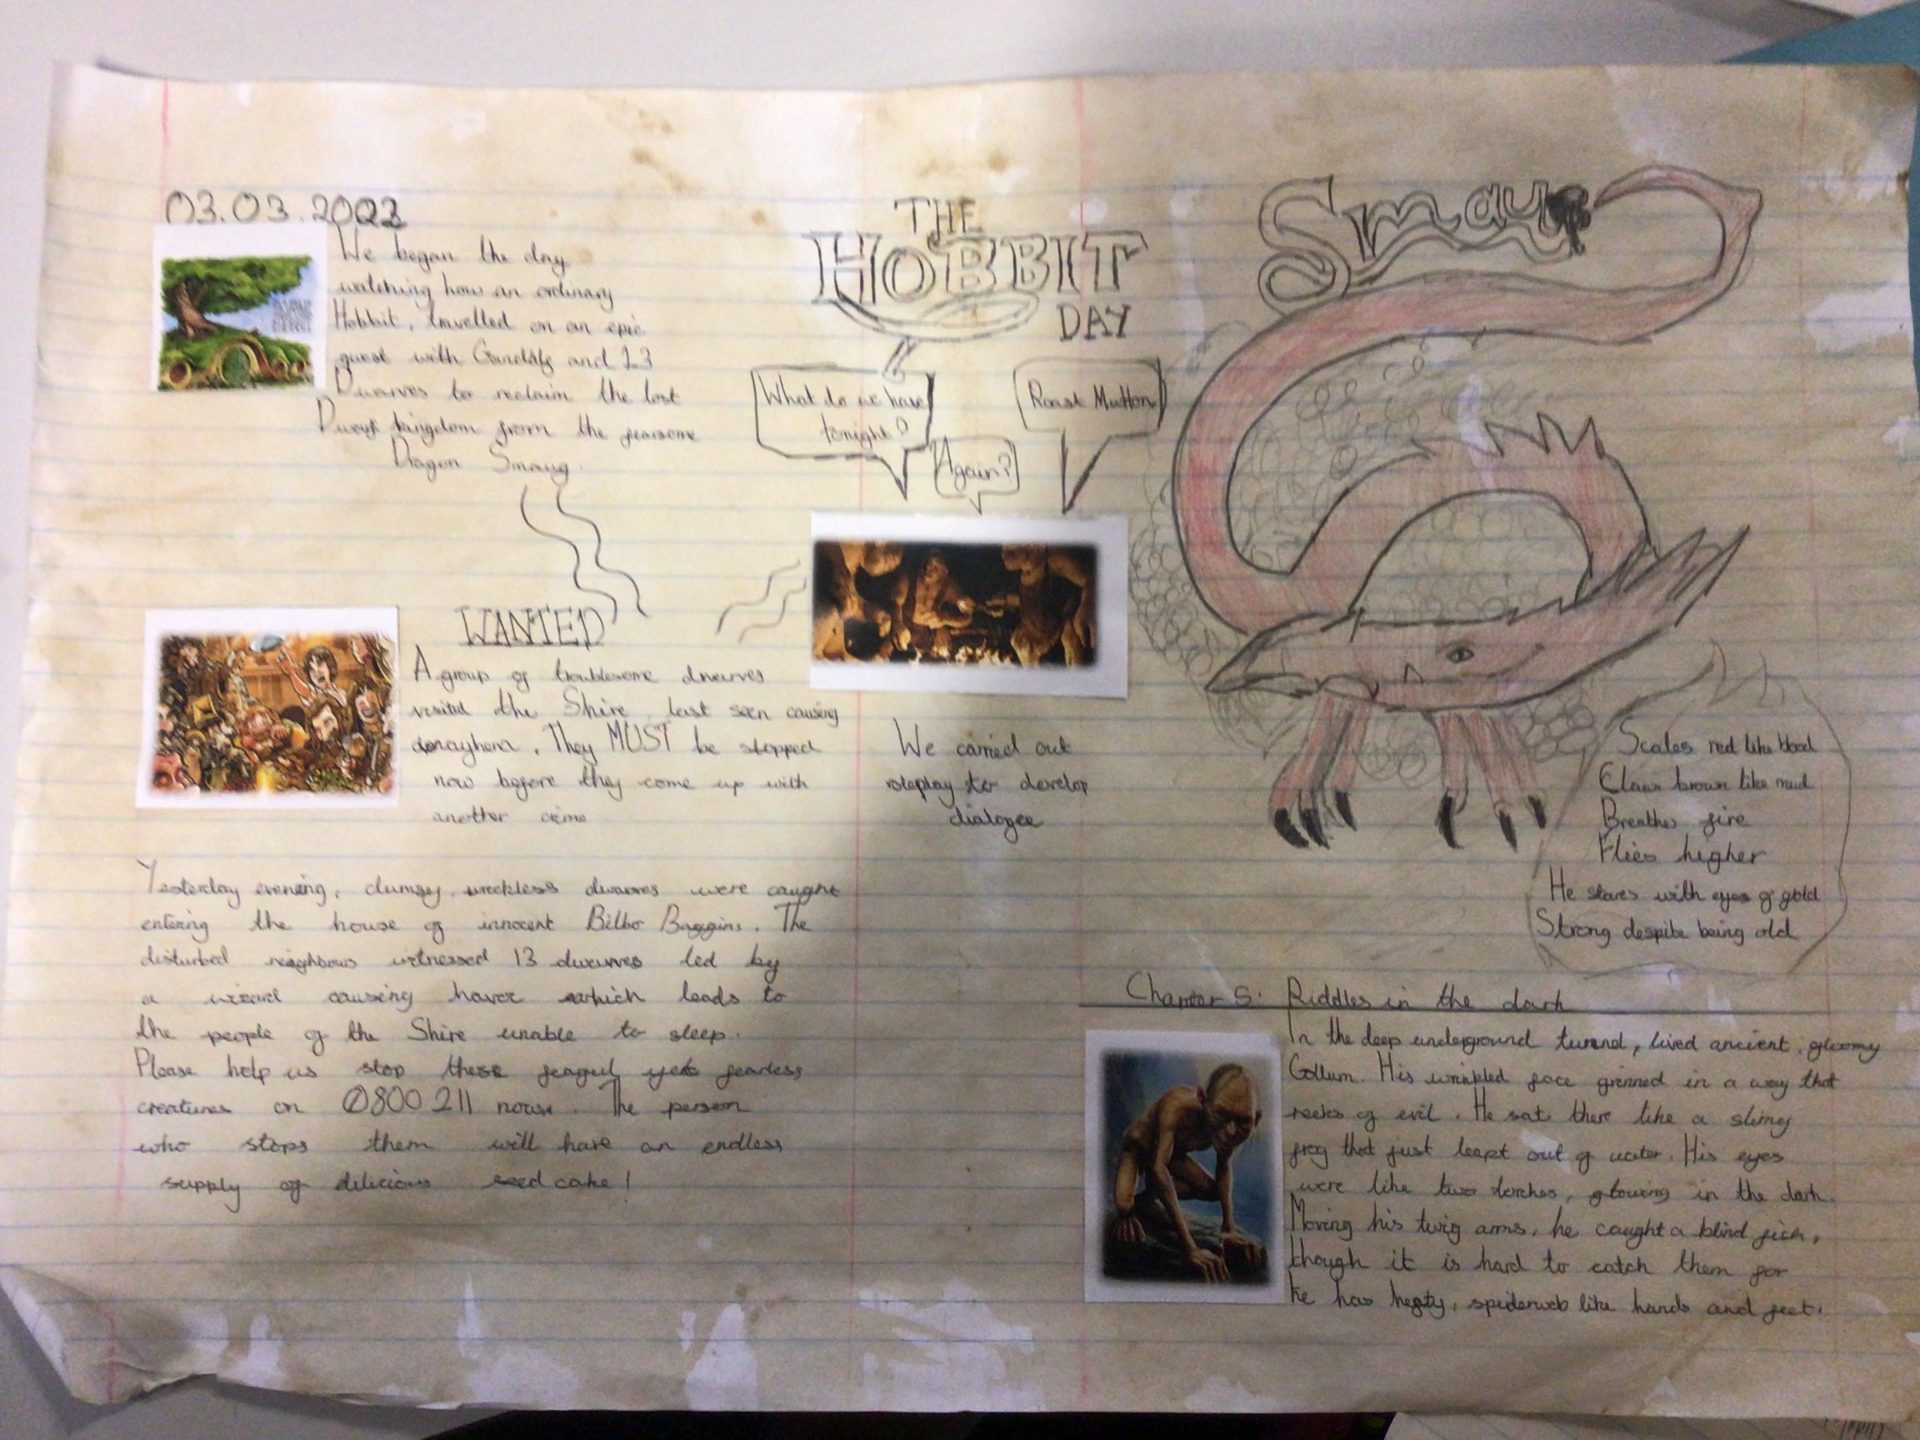 03.03.2022
We began the day
watching how an ordinary
Hobbit, travelled on an epic
quest with Gandalf and 13
Dwarves to reclaim the lost
Dwarf kingdom from the fearsome
Dragon Smaug.
WANTED
A group of troublesome dwarves
visited the Shire, last seen causing
They MUST be stopped
now before they come up with
another crime
Yesterday evening, clumsy, wreckless dwarves were caught
entering the house of innocent Bilbo Baggins. The
disturbed witnessed 13 dwarves led by
a wizard causing which leads to
the people of the Shire unable to sleep.
Please help us stop these yet fearless
creatures on 0800 211 The person
who stops them will have an endless
supply of delicious seed cake!
THE
HOBBIT
DAY
What do we have
tonight?
Again?
Roast Mutton
We carried out
roleplay to develop
dialogee
Smaug
Scales red like blood
Claws brown like mud
Breathes fire
Flies higher
He stares with eyes of gold
Strong despite being old
Chapter 5: Riddles in the dark
In the deep underground lived ancient, gloomy
Gollum. His wrinkled face grinned in a way that
reeks of evil. He sat there like a slimy
frog that just leapt out of water. His eyes
were like two torches, glowing in the dark.
Moving his twig arms, he caught a blind fish,
though it is hard to catch them for
he has spiderweb like hands and feet.